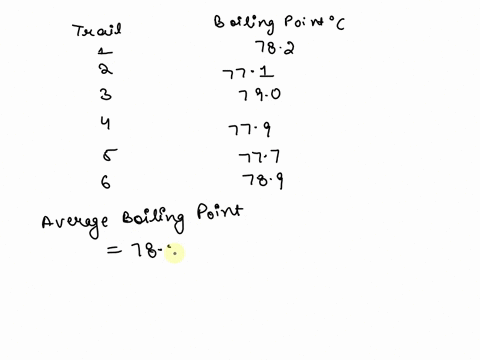 Trail Boiling Point °C
1 78.2
2 77.1
3 79.0
4 77.9
5 77.7
6 78.9
Average Boiling Point
= 78.